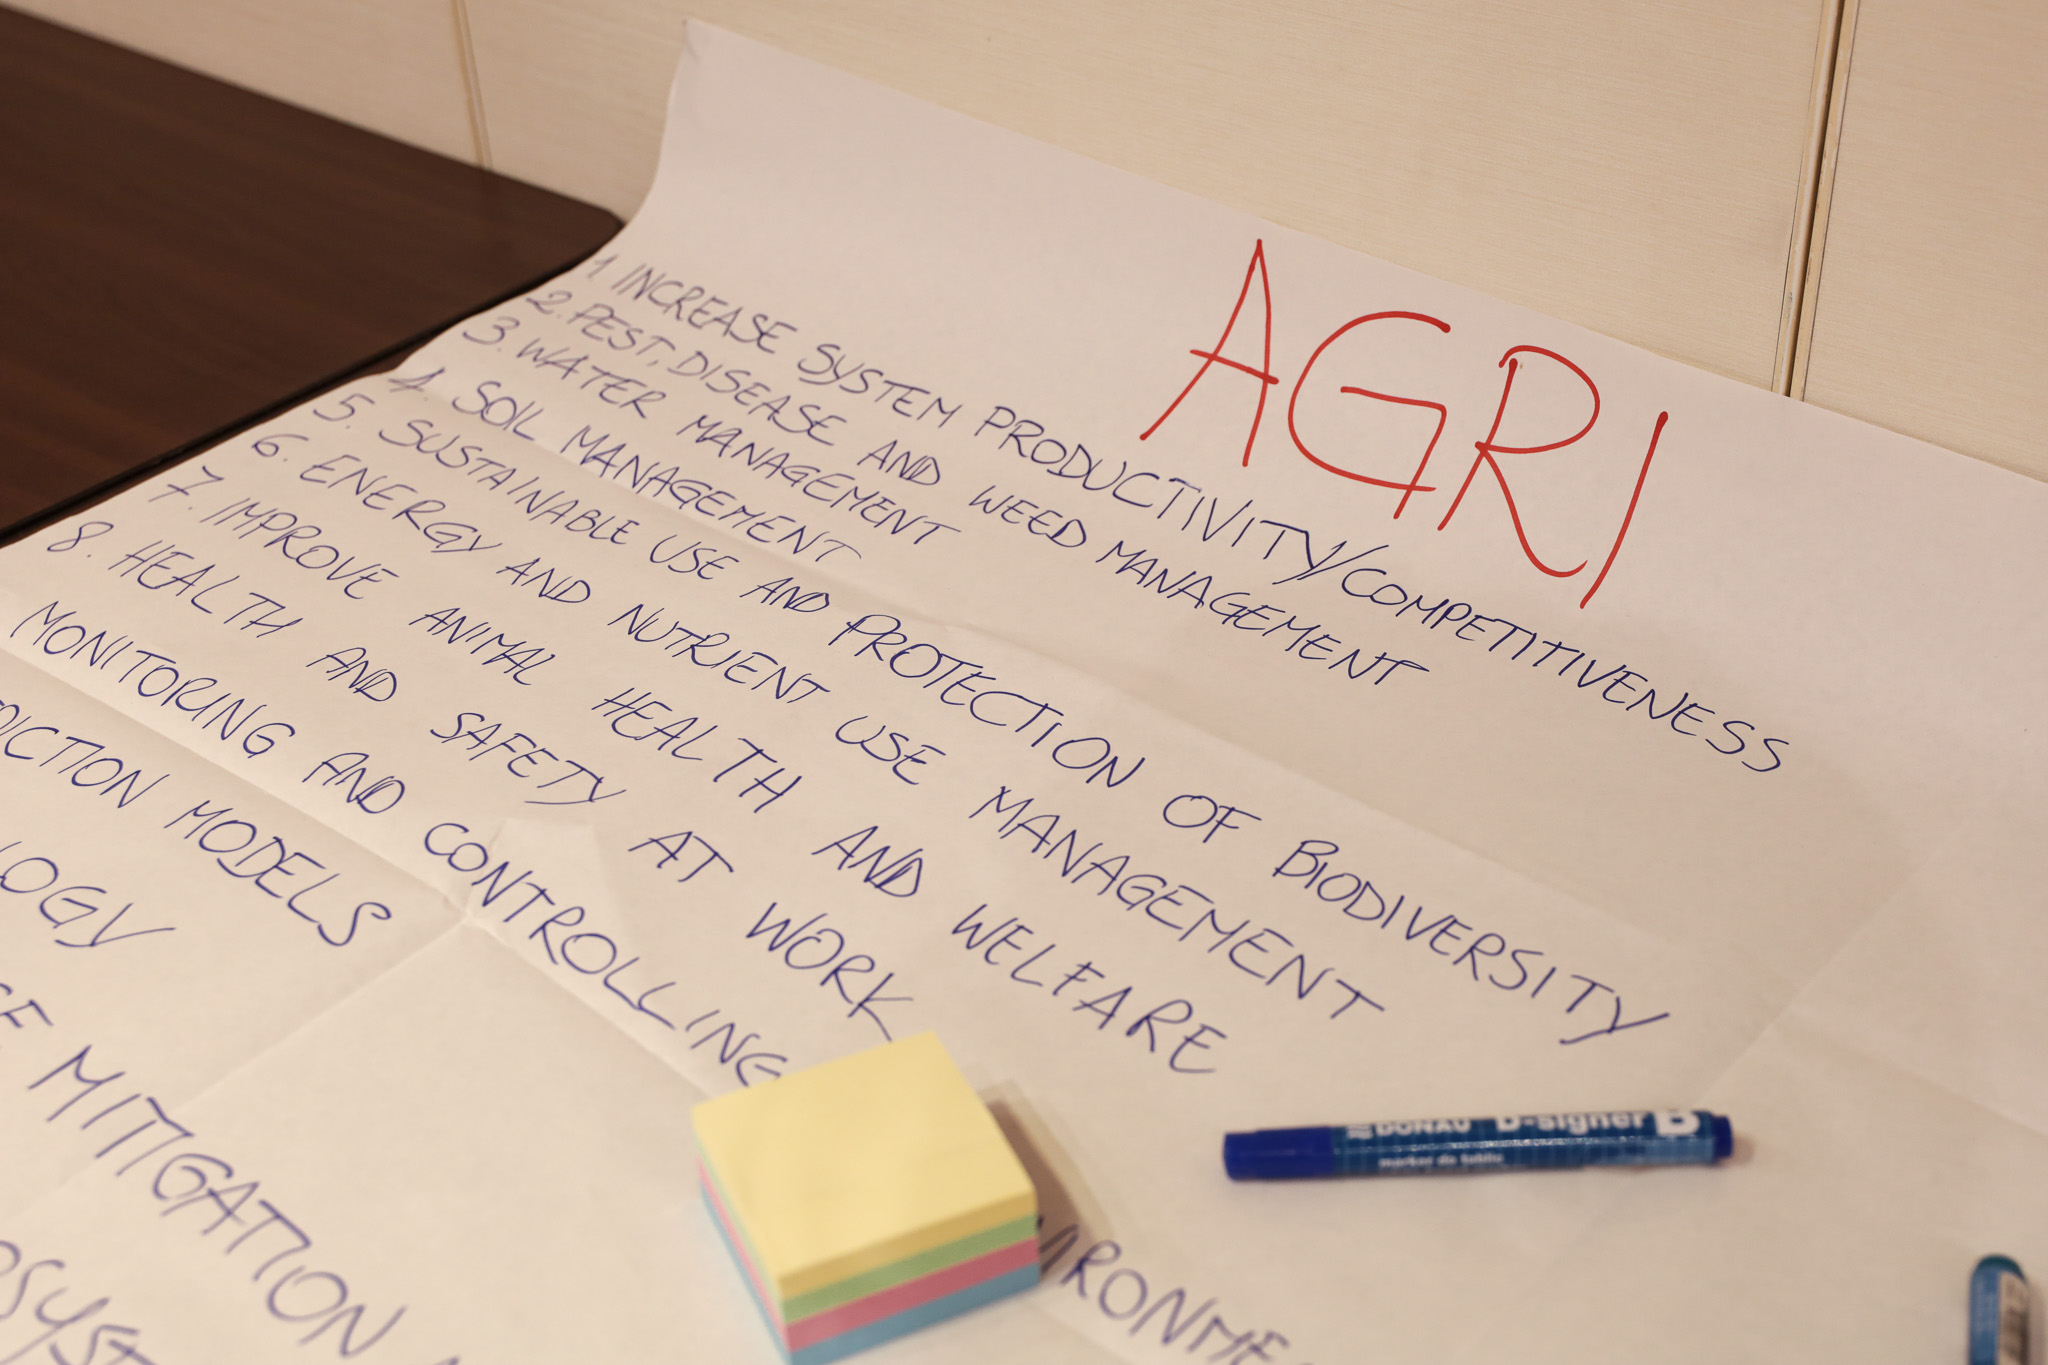 AGRI
1 INCREASE SYSTEM PRODUCTIVITY/COMPETITIVENESS
2. PEST, DISEASE AND WEED MANAGEMENT
3. WATER MANAGEMENT
4. SOIL MANAGEMENT
5. SUSTAINABLE USE AND PROTECTION OF BIODIVERSITY
6. ENERGY AND NUTRIENT USE MANAGEMENT
7. IMPROVE ANIMAL HEALTH AND WELFARE
8. HEALTH AND SAFETY AT WORK
MONITORING AND CONTROLLING
MODELS
MITIGATION
DONAU D-signer B
marker do tablic